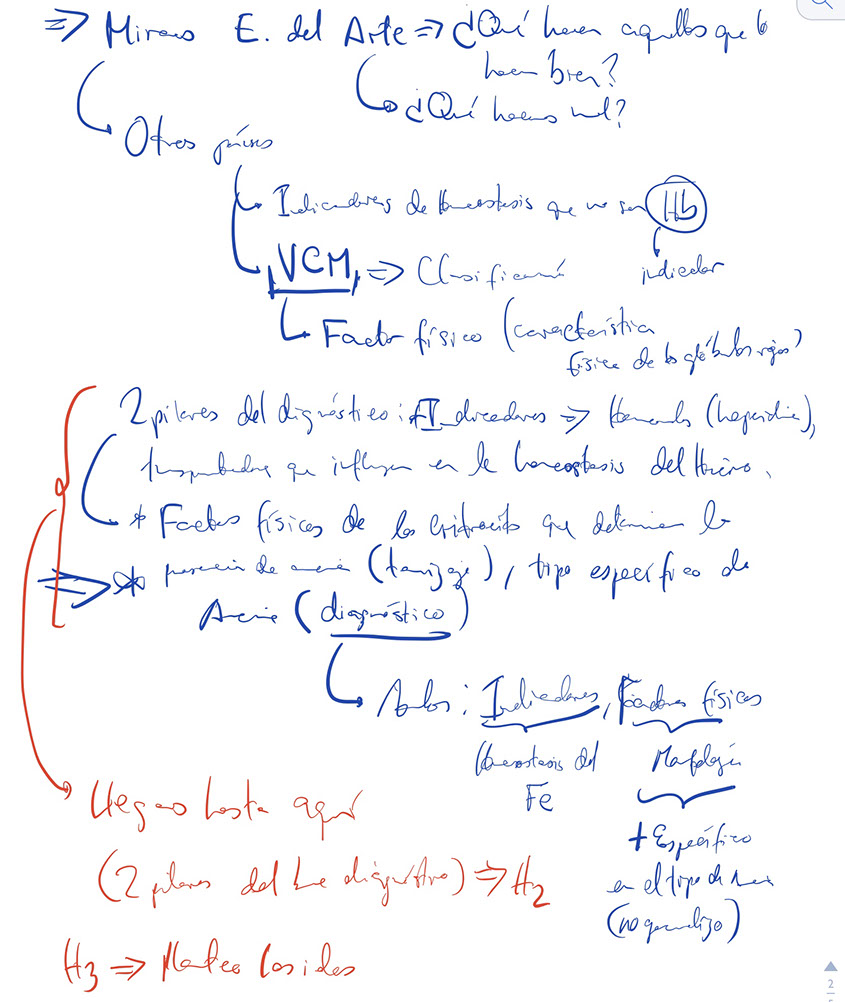 ⇒ Miramos E. del Arte ⇒ ¿Qué hacen aquellos que lo
hacen bien?
¿Qué hacemos mal?
Otros países
Indicadores de Homeostasis que no son Hb
indicador
VCM ⇒ Clasificamos
Factor físico (característica
física de los glóbulos rojos)
2 pilares del diagnóstico: Indicadores ⇒ (hepcidina),
que influyen en la homeostasis del Hierro.
* Factores físicos de los eritrocitos que determinan la
⇒ * presencia de anemia (tamizaje), tipo específico de
Anemia (diagnóstico)
Ambos: Indicadores, Factores físicos
Homeostasis del
Fe
Morfología
+ Específico
en el tipo de anemia
(no generalizo)
Llegamos hasta aquí
(2 pilares del diagnóstico) ⇒ H2
H3 ⇒
2